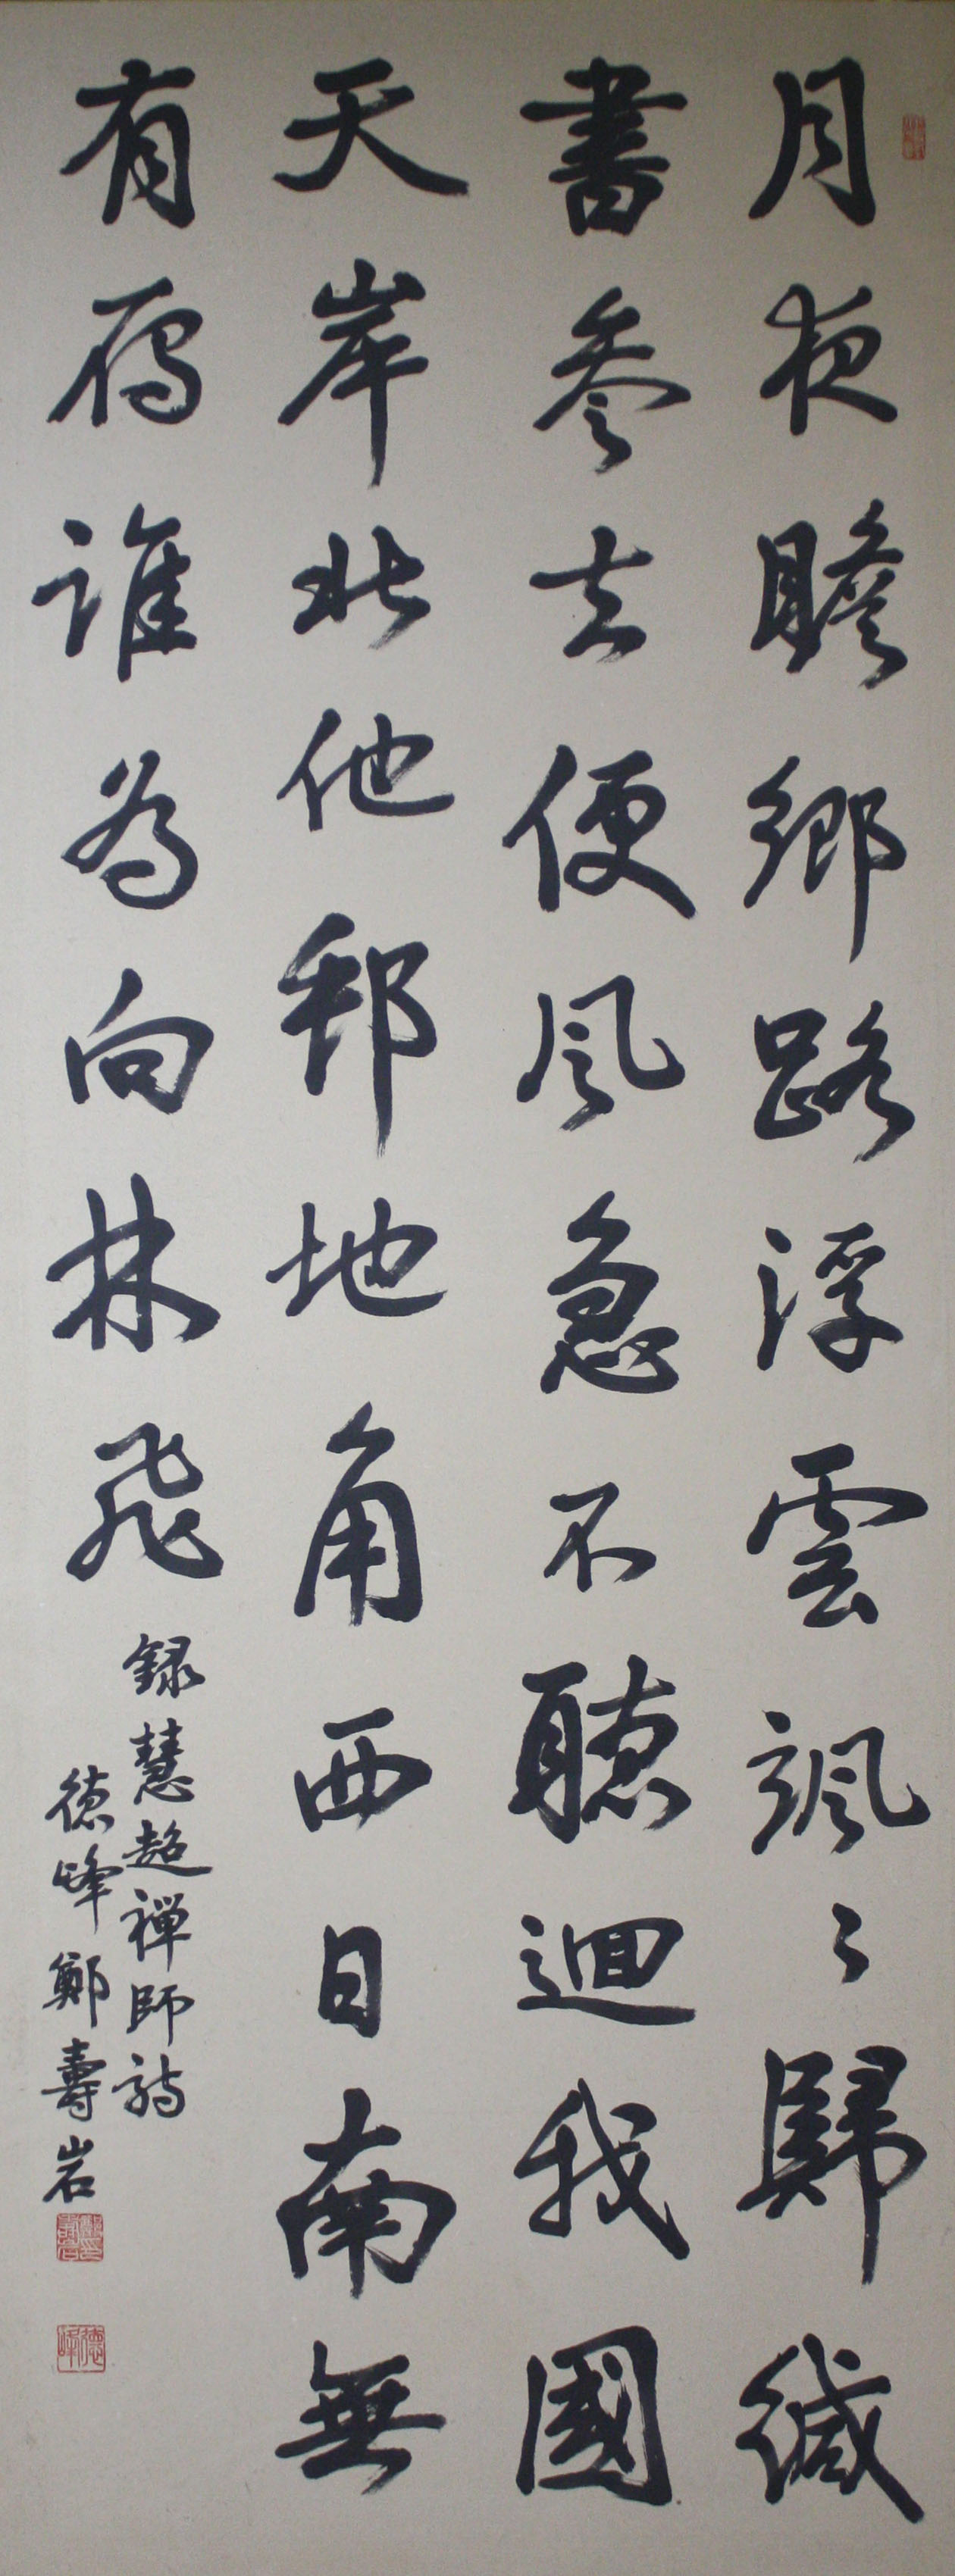 月夜瞻鄉路浮雲颯〻歸緘
書參去便風急不聽迴我國
天岸北他邦地角西日南無
有雁誰為向林飛
録慧超禪師詩
德峰鄭壽岩